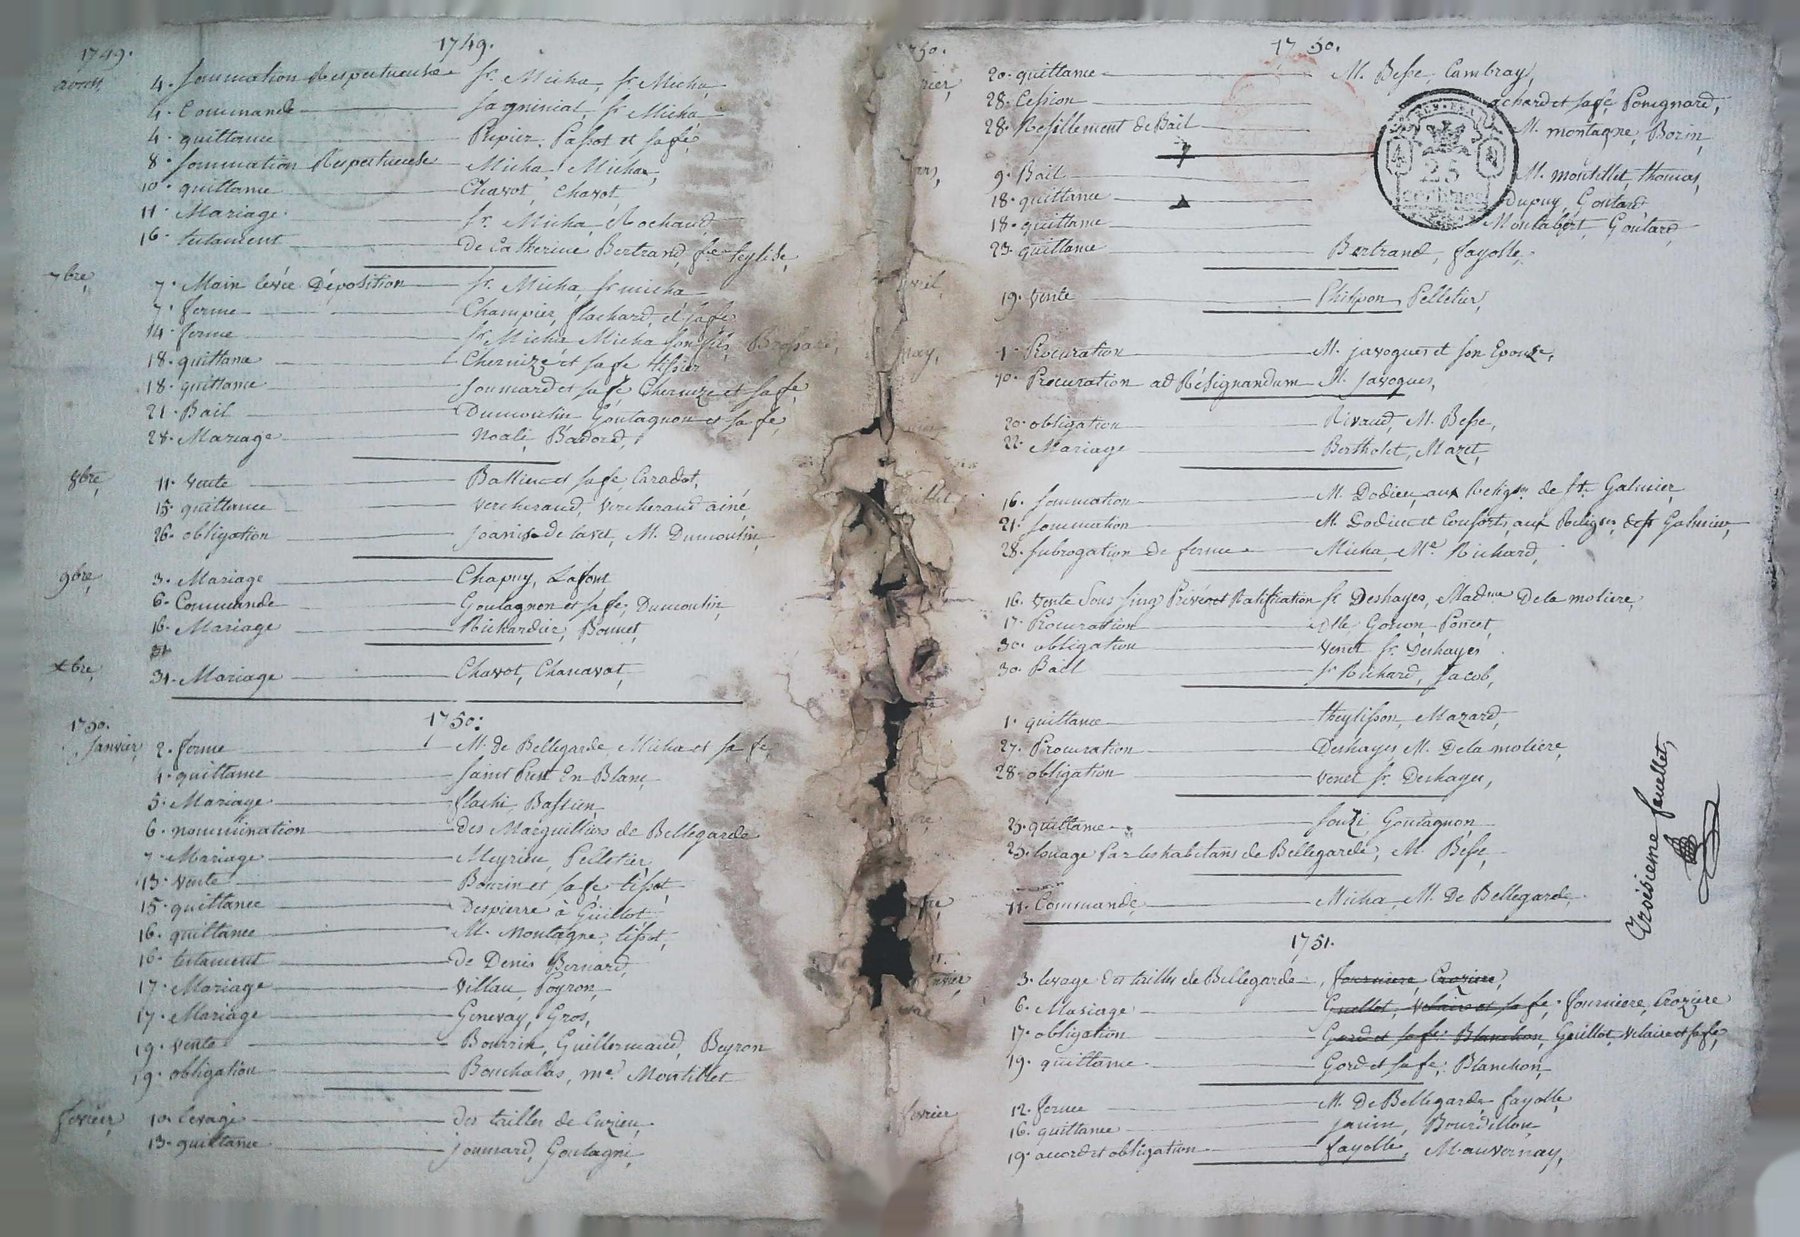 1749. 1749.
aoust, 4. sommation Respectueuse Sr. Micha, Sr Micha,
4. Commande Sr Micha
4. quittance Pupier, Passot et sa fe
8. sommation Respectueuse Micha, Micha,
10. quittance Chavot, Chavot,
11. Mariage Sr. Micha, Rochaud,
16. testament de Catherine Bertrand, fe
7bre, 7. Main levée Déposition Sr. Micha, Sr micha
7. ferme Champier, flachard, et sa fe
14. ferme Sr. Micha Micha son fils, Brossard,
18. quittance Chernizé et sa fe tissier
18. quittance Joumard et sa fe, Chernize et sa fe
21. Bail Dumoulin Goutagnon et sa fe,
28. Mariage Noali, Badord,
8bre, 11. vente Bassieu et sa fe, Caradot,
15. quittance Vercheraud, Vercheraud ainé,
26. obligation de lavet, M. Dumoulin,
9bre, 3. Mariage Chapuy, Lafont
6. Commande Goutagnon et sa fe, Dumoulin,
16. Mariage Richardier, Bonnet,
31
xbre, 31. Mariage Chavot, Chanavat,
1750. 1750.
Janvier, 2. ferme M. de Bellegarde, Micha et sa fe,
4. quittance Saint Priest En Blanc,
5. Mariage flachi, Bassien
6. nommination des Marguilliers de Bellegarde
7. Mariage Meyrieu, Pelletier,
13. vente Bourin et sa fe tissot,
15. quittance Despierre à Guillot,
16. quittance M. Montagne, tissot,
16. testament de Denis Bernard,
17. Mariage Villau, Poyron,
17. Mariage Genevay, Gros,
19. vente Bourrin, Guillermaud, Beyron
19. obligation Bouchalas, me. Montillet
fevrier, 10. levage des tailles de Cuzieu,
13. quittance Joumard, Goutagni,
1750. 1750.
20. quittance M. Besse, Cambray,
28. Cession et sa fe, Poingnard,
28. Resillement de Bail M. montagne, Borin,
25
centimes
9. Bail M. montillet, thomas,
18. quittance dupuy, Goutard
18. quittance Montabért, Goutard,
23. quittance Bertrand, fayolle,
19. vente Phispon, Pelletier,
1. Procuration M. javogues et son Epouse,
10. Procuration ad Résignandum M. javogues,
20. obligation Rivaud, M. Besse,
22. Mariage Bertholet, Mazet,
16. sommation M. Dodieu, aux Religses de St. Galmier,
21. sommation M. Dodieu et Consorts, aux Religses de St Galmier,
28. subrogation de ferme Micha, Me. Richard,
16. vente sous sing Privé et Ratiffication Sr Deshayes, Madme Dela moliere,
17. Procuration Gonon, Poncet,
30. obligation Venet Sr. Deshayes
30. Bail Sr Richard, Jacob,
1. quittance theylisson, Mazard,
27. Procuration Deshayes M. Dela moliere,
28. obligation Venet Sr. Deshayes,
25. quittance Goutagnon
25. louage Par les habitans de Bellegarde, M. Besse,
11. Commande, Micha, M. De Bellegarde,
Troisieme feuillet,
1751.
3. levage des tailles de Bellegarde, fourniere, Croziere,
6. Mariage Guillot, Velaire et sa fe, fourniere, Croziere
17. obligation Gord et sa fe; Blanchon, Guillot, Velaire et sa fe,
19. quittance Gord et sa fe; Blanchon,
fevrier 12. ferme M. De Bellegarde, fayolle,
16. quittance janin, Bourdillon,
19. accord et obligation fayolle, M. auvernay,